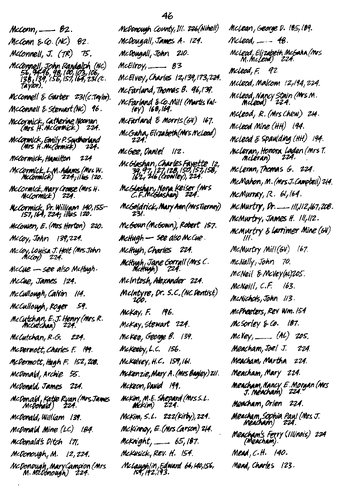 46
McConn, —— 82.
McConn & Co. (NC) 82.
McConnell, J. (TR) 75.
McConnell, John Randolph (NC)
McConnell & Garber 231 (C. Taylor).
McConnell & Stewart (NC) 96.
McCormick, Catherine Norman
(Mrs H. McCormick) 224.
McCormick, Emily P. Southerland
(Mrs H. McCormick) 224.
McCormick, Hamilton 224
McCormick, L.M. Adams (Mrs W.
McCormick) 224, illus 120.
McCormick, Mary Crowe (Mrs H.
McCormick) 224.
McCormick, Dr. William 140, 155-
157, 164, 224; illus 120.
McCowen, E. (Mrs Horton) 210.
McCoy, John 139, 224.
McCoy, Louisa J. Holt (Mrs John
McCoy) 224.
McCue — see also McHugh.
McCue, James 124.
McCullough, Calvin 114.
McCullough, Roger 59.
McCutchan, E.J. Henry (Mrs R.
McCutchan) 224.
McCutchan, R.G. 224.
McDermott, Charles F. 199.
McDermott, Hugh F. 152, 228.
McDonald, Archie 55.
McDonald, James 224.
McDonald, Katie Ryan (Mrs James
McDonald) 224.
McDonald, William 139.
McDonald Mine (LC) 184.
McDonald's Ditch 171.
McDonough, M. 12, 224.
McDonough, Mary Campion (Mrs
M. McDonough) 224.
McDonough County, Ill. 226 (Nihell)
McDougall, James A. 124.
McDougall, John 210.
McElroy, —— 83.
McElvey, Charles 12, 139, 173, 224.
McFarland, Thomas B. 96, 139.
McFarland & Co. Mill (Martis Valley) 168, 169.
McFarland & Morris (GV) 167.
McGaha, Elizabeth (Mrs McLeod)
224.
McGee, Daniel 112.
McGlashan, Charles Fayette 12,
McGlashan, Nona Keiser (Mrs
C.F. McGlashan) 224.
McGoldrick, Mary Ann (Mrs Tierney)
231.
McGown (McGowin), Robert 157.
McHugh — see also McCue.
McHugh, Charles 224.
McHugh, Jane Correll (Mrs C.
McHugh) 224.
McIntosh, Alexander 224.
McIntyre, Dr. S.C. (NC Dentist)
208.
McKay, F. 196.
McKay, Stewart 224.
McKee, George B. 139.
McKeeby, L.C. 156.
McKelvey, H.C. 159, 161.
McKenzie, Mary A. (Mrs Bagley) 211.
McKeon, David 199.
McKim, M.E. Shepard (Mrs S.L.
McKim) 224.
McKim, S.L. 222 (Kirby), 224.
McKinney, E. (Mrs Carson) 214.
McKnight, —— 65, 187.
McKusick, Rev. H. 154.
McLaughlin, Edward 64, 140, 156,
159, 192, 193.
McLean, George D. 185, 189.
McLeod, —— 48.
McLeod, Elizabeth McGaha (Mrs
M. McLeod) 224.
McLeod, F. 92
McLeod, Malcom 12, 194, 224.
McLeod, Nancy Stain (Mrs M.
McLeod) 224.
McLeod, R. (Mrs Chew) 214.
McLeod Mine (HH) 194.
McLeod & Spaulding (HH) 194.
McLeran, Honora Layden (Mrs T.
McLeran) 224.
McLeran, Thomas G. 224.
McMahon, M. (Mrs J. Campbell) 214.
McMurray, R. 61, 164.
McMurtry, Dr. —— 111, 112, 167, 208.
McMurtry, James H. 111, 112.
McMurtry & Larrimer Mine (GV)
111.
McMurtry Mill (GV) 167.
McNally, John 70.
McNeil & McVey (W) 205.
McNeill, C.F. 163.
McNichols, John 113.
McPheeters, Rev Wm. 154
McSorley & Co. 187.
McVey, —— (AC) 205.
Meacham, Joel J. 224
Meacham, Martha 224.
Meacham, Mary 224.
Meacham, Nancy E. Morgan (Mrs
J. Meacham) 224.
Meacham, Orlen 224.
Meacham, Sophia Paul (Mrs J.
Meacham) 224.
Meacham's Ferry (Illinois) 224
(Meacham)
Mead, C.H. 140.
Mead, Charles 123.